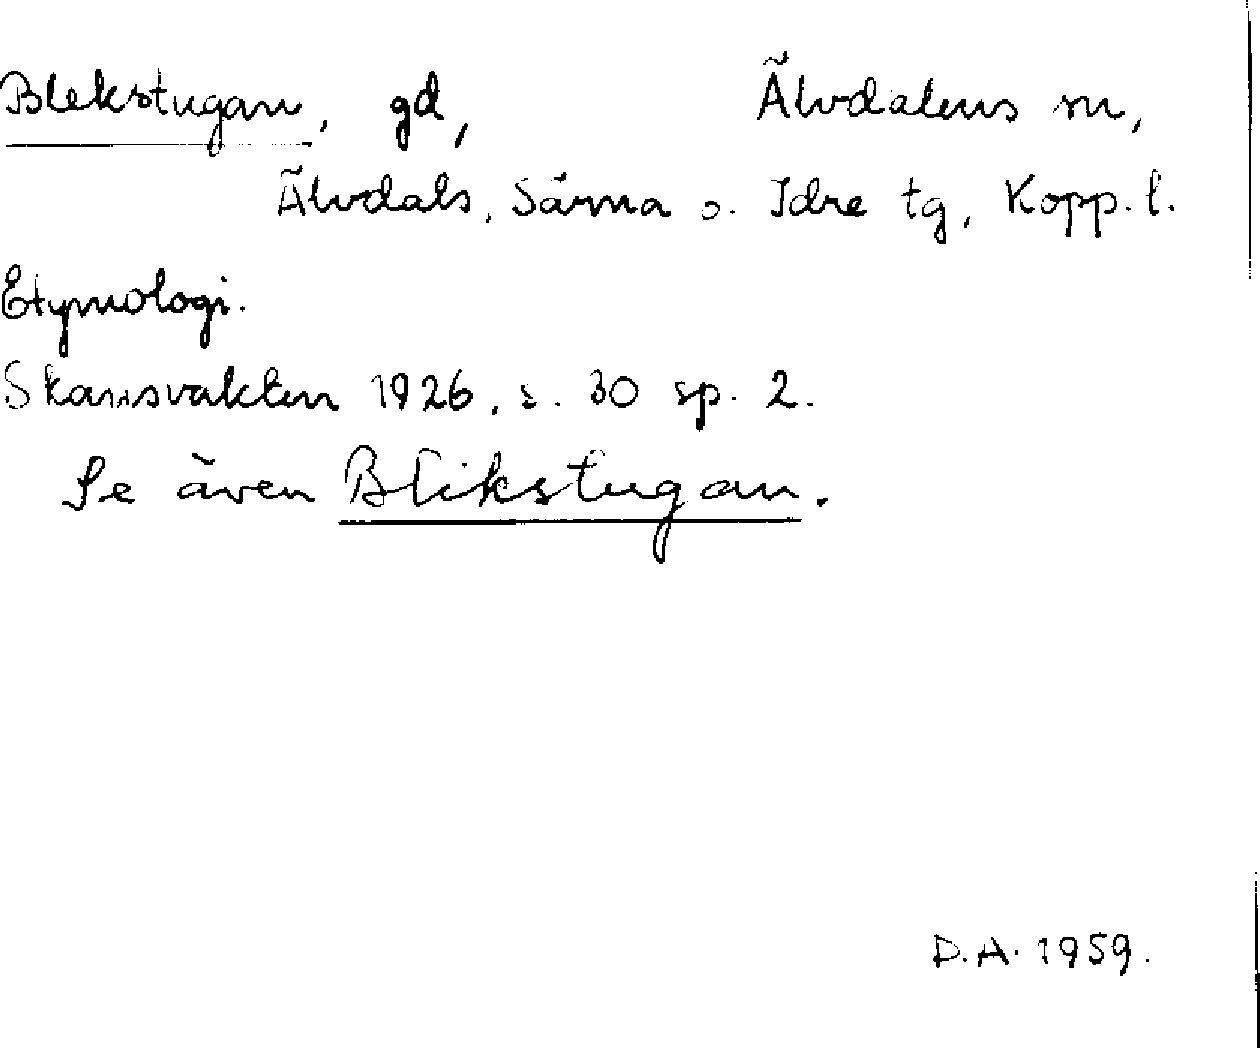 Blekstugan, gd, Älvdalens sn,
Älvdals, Särna o. Idre tg, Kopp. l.
Etymologi.
Skansvakten 1926, s. 30 sp. 2.
Se även Blikstugan.
D.A. 1959.